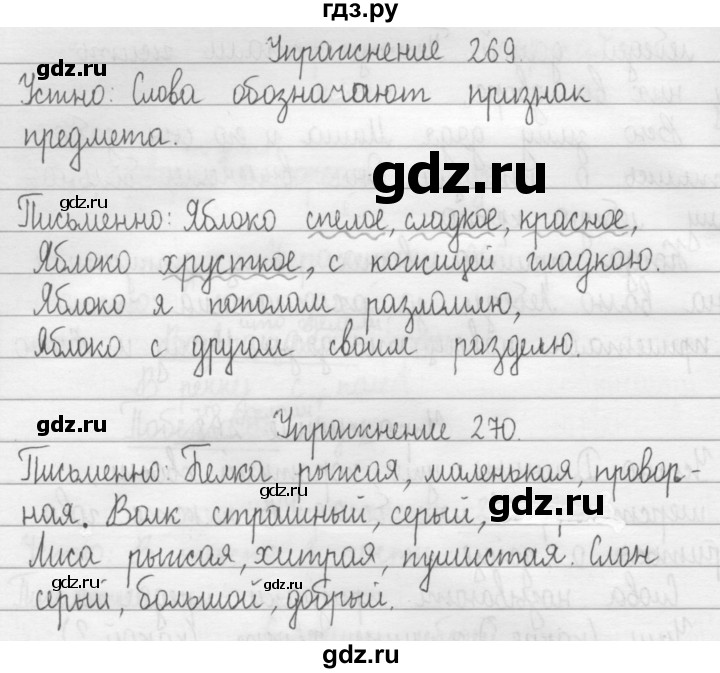 гдз.ру
Упражнение 269.
Устно: Слова обозначают признак
предмета.
gdz.ru
gdz.ru
Письменно: Яблоко спелое, сладкое, красное,
Яблоко хрусткое, с кожицей гладкою.
Яблоко я пополам разломлю,
Яблоко с другом своим разделю.
gdz.ru
gdz.ru
Упражнение 270.
Письменно: Белка рыжая, маленькая, провор-
gdz.ru
gdz.ru
ная. Волк страшный, серый,
Лиса рыжая, хитрая, пушистая. Слон
gdz.ru
gdz.ru
серый, большой, добрый.
gdz.ru